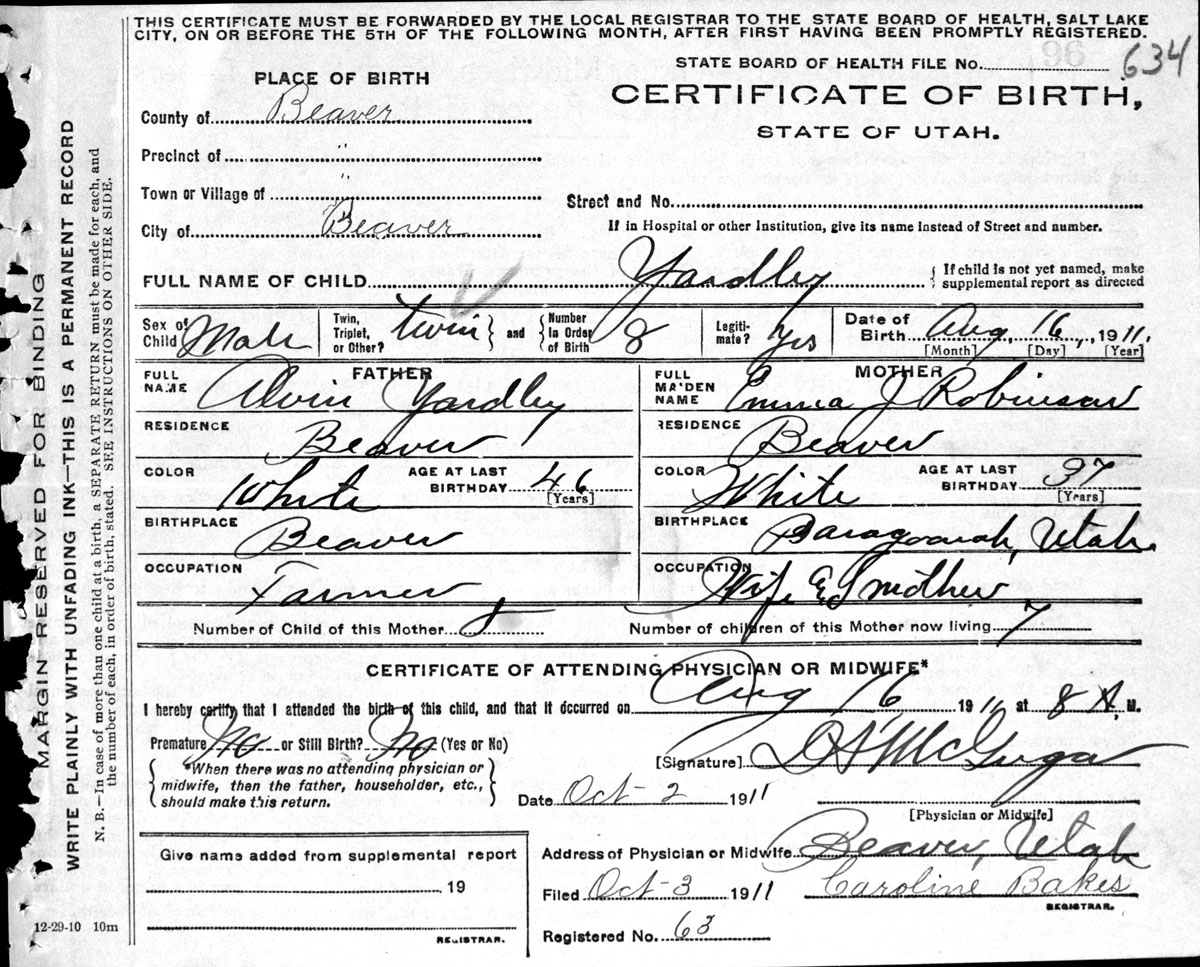 THIS CERTIFICATE MUST BE FORWARDED BY THE LOCAL REGISTRAR TO THE STATE BOARD OF HEALTH, SALT LAKE
CITY, ON OR BEFORE THE 5TH OF THE FOLLOWING MONTH, AFTER FIRST HAVING BEEN PROMPTLY REGISTERED.
STATE BOARD OF HEALTH FILE No. 634
PLACE OF BIRTH
CERTIFICATE OF BIRTH,
STATE OF UTAH.
County of Beaver
Precinct of "
Town or Village of "
Street and No.
City of Beaver
If in Hospital or other Institution, give its name instead of Street and number.
FULL NAME OF CHILD Yardley { If child is not yet named, make
supplemental report as directed
Sex of Child Male
Twin, Triplet, or Other? twin } and { Number in Order of Birth 8
Legitimate? Yes
Date of Birth Aug 16, 1911.
[Month] [Day] [Year]
FATHER
FULL NAME Alvin Yardley
MOTHER
FULL MAIDEN NAME Emma J Robinson
RESIDENCE Beaver
RESIDENCE Beaver
COLOR White AGE AT LAST BIRTHDAY 46 [Years]
COLOR White AGE AT LAST BIRTHDAY 37 [Years]
BIRTHPLACE Beaver
BIRTHPLACE Paragoonah, Utah
OCCUPATION Farmer
OCCUPATION Wife & Mother
Number of Child of this Mother 8 Number of children of this Mother now living 7
CERTIFICATE OF ATTENDING PHYSICIAN OR MIDWIFE*
I hereby certify that I attended the birth of this child, and that it occurred on Aug 16 1911 at 8 A. M.
Premature No or Still Birth? No (Yes or No)
{ *When there was no attending physician or
midwife, then the father, householder, etc.,
should make this return. }
[Signature]
Date Oct 2 1911
[Physician or Midwife]
Give name added from supplemental report
19
REGISTRAR.
Address of Physician or Midwife Beaver, Utah
Filed Oct 3 1911 Caroline Bakes
REGISTRAR.
Registered No. 63
12-29-10 10m
MARGIN RESERVED FOR BINDING
WRITE PLAINLY WITH UNFADING INK—THIS IS A PERMANENT RECORD
N. B.—In case of more than one child at a birth, a SEPARATE RETURN must be made for each, and
the number of each, in order of birth, stated. SEE INSTRUCTIONS ON OTHER SIDE.